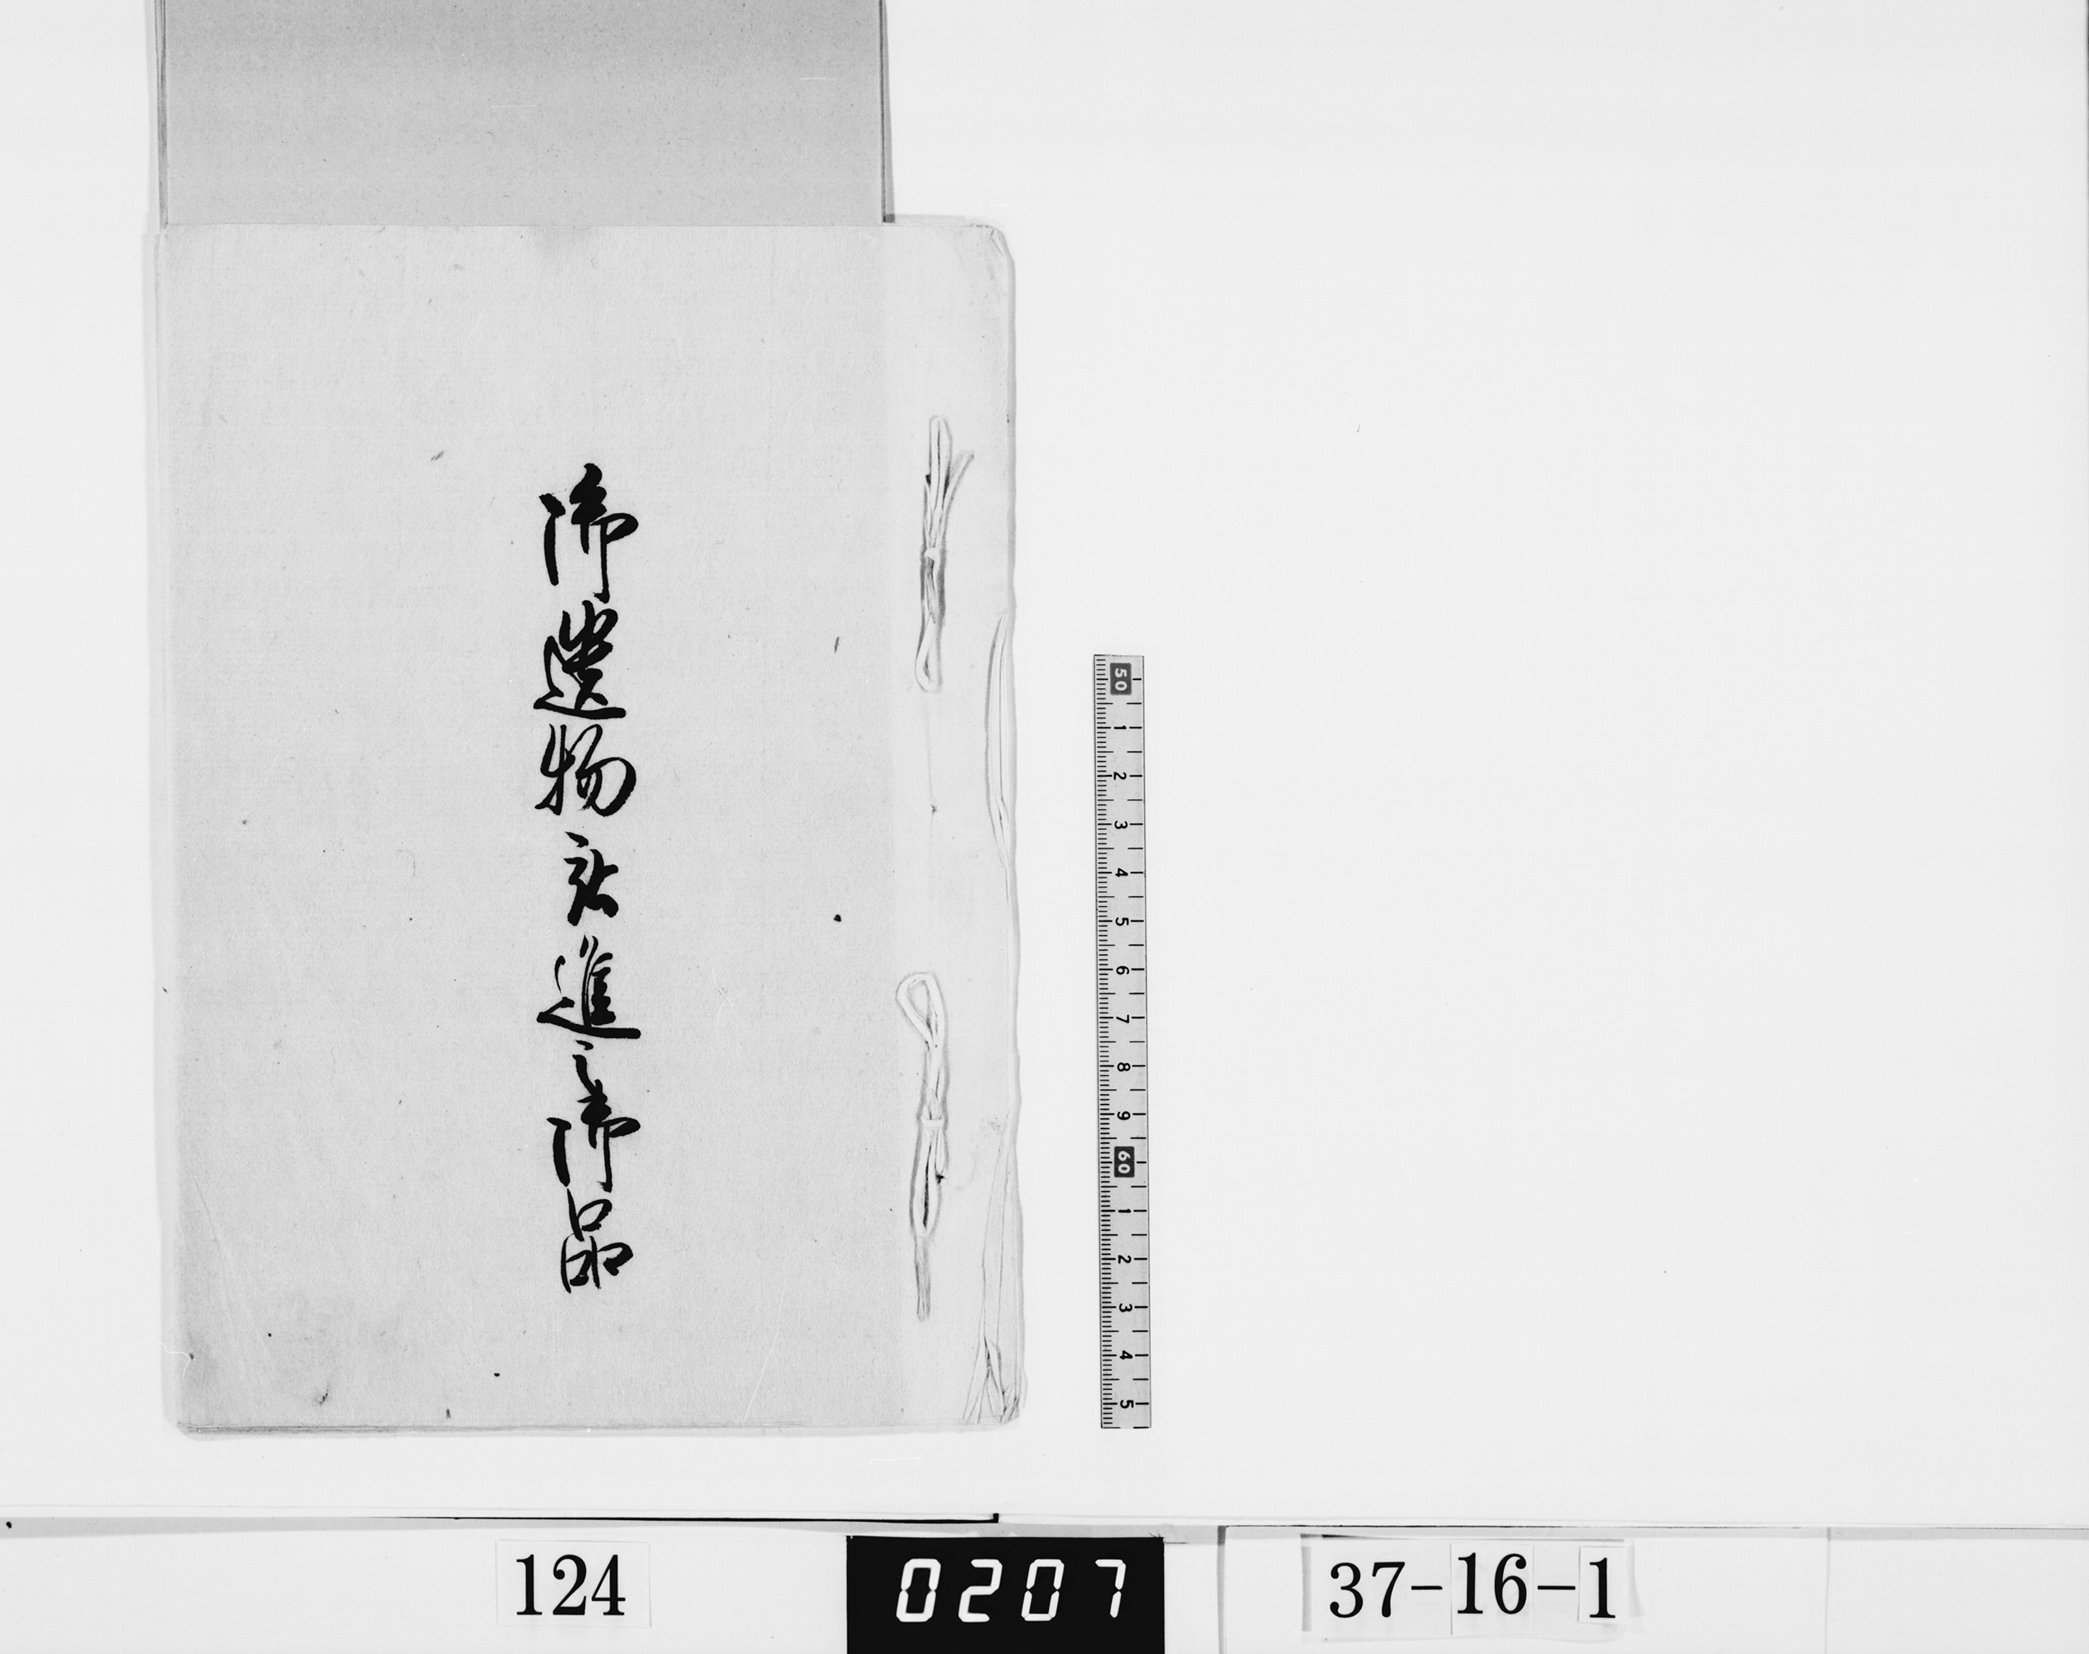 御遺物被進之御品
50 1 2 3 4 5 6 7 8 9 60 1 2 3 4 5
124
0207
37-16-1